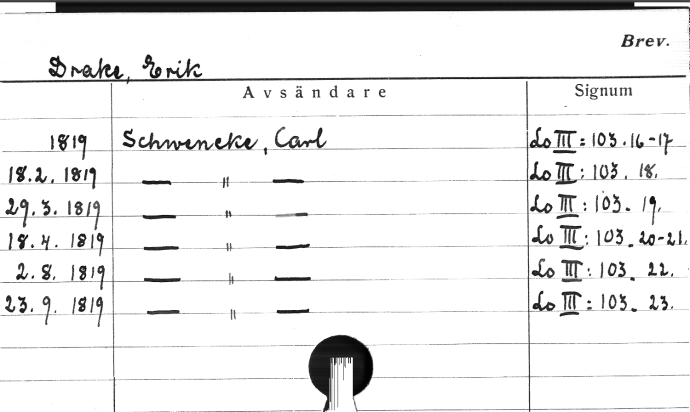 Brev.
Drake, Erik
Avsändare Signum
1819 Schwencke, Carl Lo III: 103. 16-17
18.2. 1819 — " — Lo III: 103. 18.
29.3. 1819 — " — Lo III: 103. 19.
18.4. 1819 — " — Lo III: 103. 20-21.
2.8. 1819 — " — Lo III: 103. 22.
23.9. 1819 — " — Lo III: 103. 23.